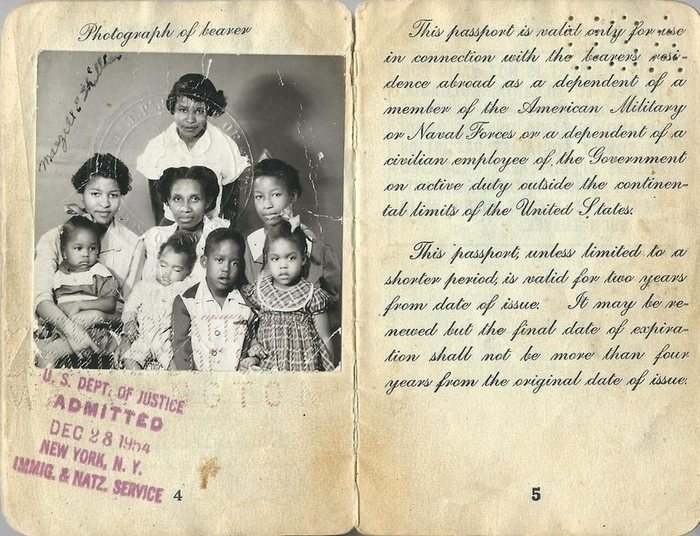 Photograph of bearer
U. S. DEPT. OF JUSTICE
ADMITTED
DEC 28 1954
NEW YORK, N. Y.
IMMIG. & NATZ. SERVICE
4
This passport is valid only for use
in connection with the bearer's resi-
dence abroad as a dependent of a
member of the American Military
or Naval Forces or a dependent of a
civilian employee of the Government
on active duty outside the continen-
tal limits of the United States.
This passport, unless limited to a
shorter period, is valid for two years
from date of issue. It may be re-
newed but the final date of expira-
tion shall not be more than four
years from the original date of issue.
5